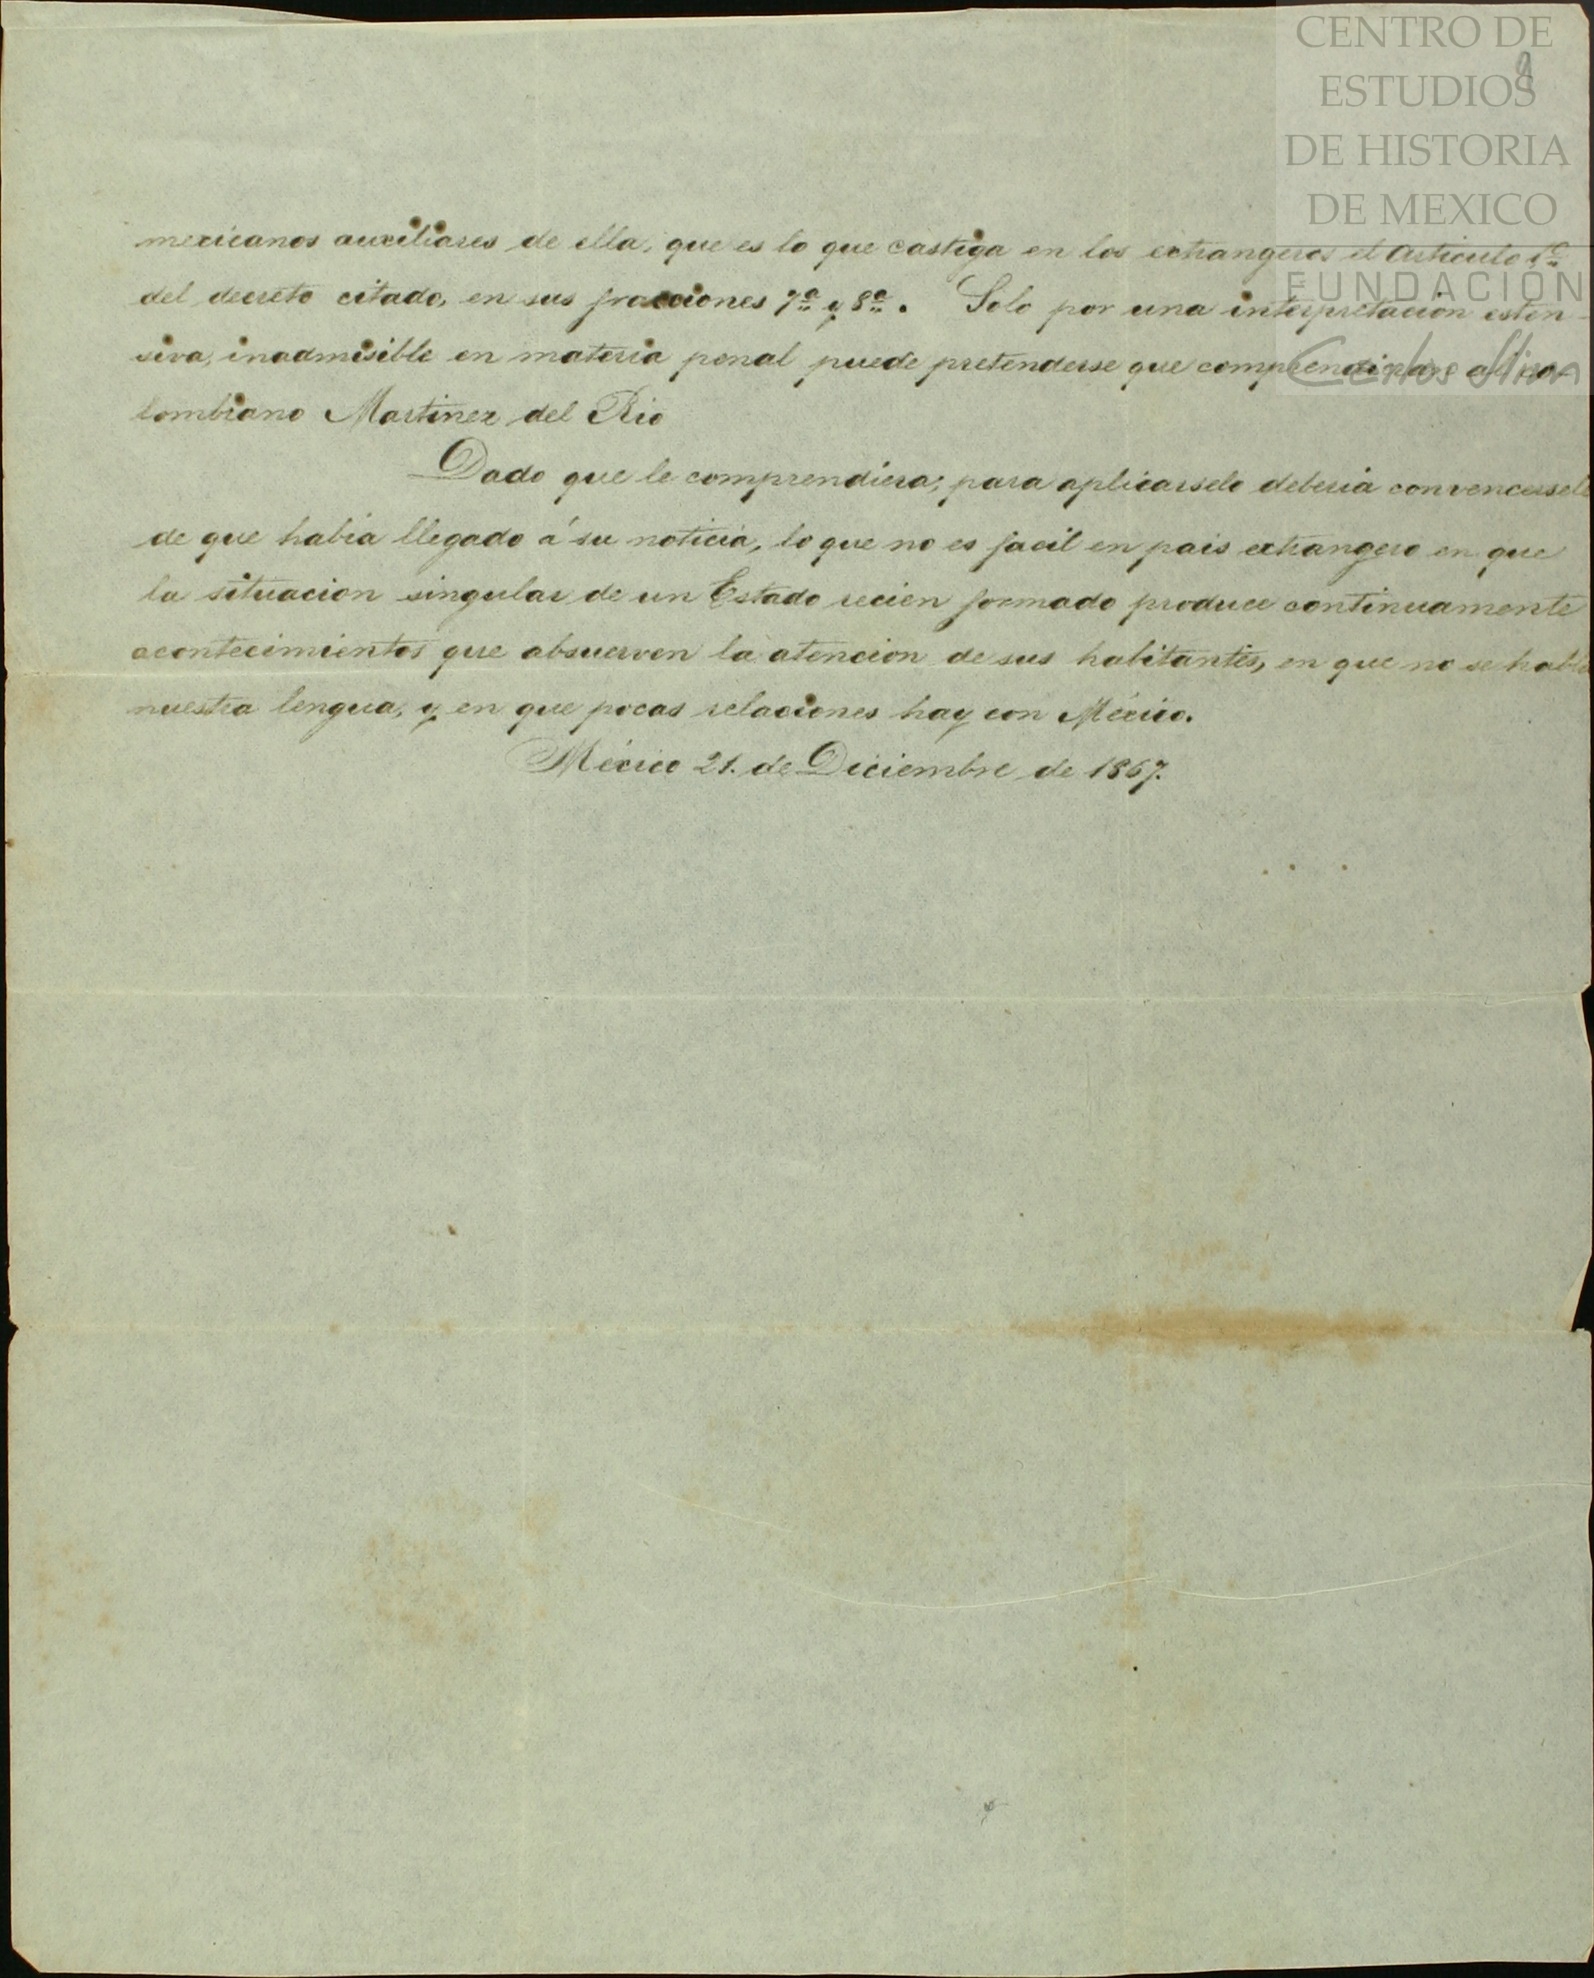 CENTRO DE
ESTUDIOS
DE HISTORIA
DE MEXICO
FUNDACIÓN
Carlos Slim
mexicanos auxiliares de ella, que es lo que castiga en los extrangeros el Articulo 1º
del decreto citado, en sus fracciones 7ª y 8ª. Solo por una interpretacion esten-
siva, inadmisible en materia penal puede pretenderse que al co-
lombiano Martinez del Rio
Dado que le comprendiera; para aplicarselo deberia convencersele
de que habia llegado á su noticia, lo que no es facil en pais extrangero en que
la situacion singular de un Estado recien formado produce continuamente
acontecimientos que absuerven la atencion de sus habitantes, en que no se habla
nuestra lengua, y en que pocas relaciones hay con México.
México 21. de Diciembre de 1867.